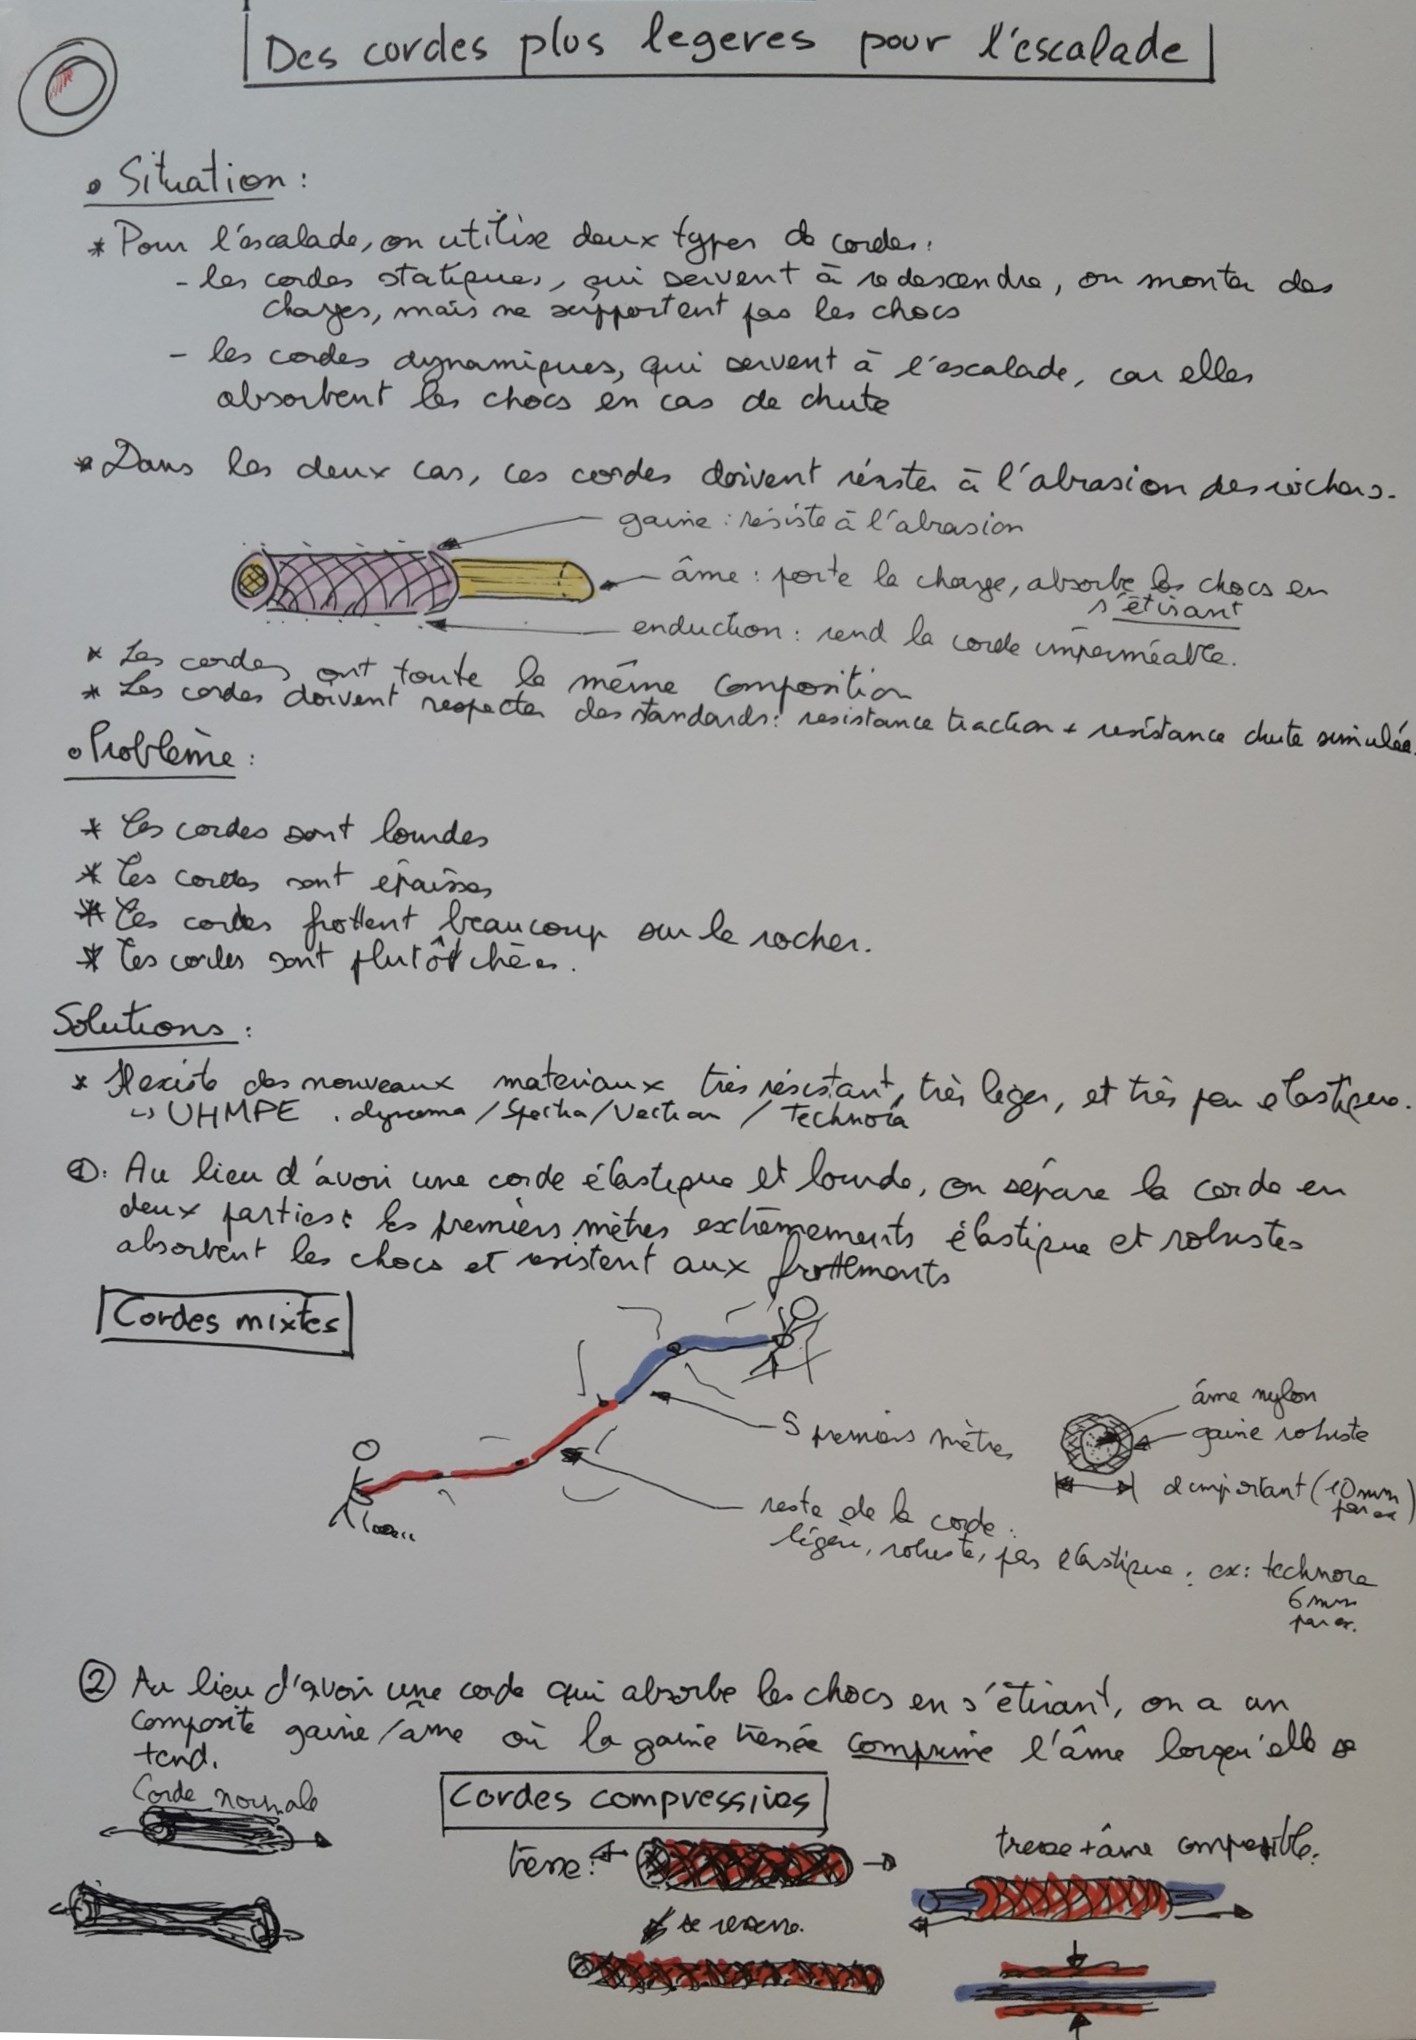 Des cordes plus legeres pour l'escalade
• Situation :
* Pour l'escalade, on utilise deux types de cordes :
- les cordes statiques, qui servent à redescendre, ou monter des
charges, mais ne supportent pas les chocs
- les cordes dynamiques, qui servent à l'escalade, car elles
absorbent les chocs en cas de chute
* Dans les deux cas, ces cordes doivent résister à l'abrasion des rochers.
gaine : résiste à l'abrasion
âme : porte la charge, absorbe les chocs en
s'étirant
enduction : rend la corde imperméable.
* Les cordes ont toute la même composition
* Les cordes doivent respecter des standards : resistance traction + resistance chute simulée.
• Problème :
* Les cordes sont lourdes
* Les cordes sont épaisses
* Les cordes frottent beaucoup sur le rocher.
* Les cordes sont plutôt chères.
Solutions :
* Il existe des nouveaux materiaux très résistant, très leger, et très peu elastique.
↳ UHMPE . dyneema / Spectra / Vectran / Technora
①: Au lieu d'avoir une corde élastique et lourde, on sépare la corde en
deux parties : les premiers mètres extrêmements élastique et robustes
absorbent les chocs et resistent aux frottements
Cordes mixtes
5 premiers mètres
âme nylon
gaine robuste
d important (10 mm
par ex)
reste de la corde :
légère, robuste, pas elastique : ex : technora
6 mm
par ex.
② Au lieu d'avoir une corde qui absorbe les chocs en s'étirant, on a un
composite gaine/âme où la gaine tressée comprime l'âme lorsqu'elle se
tend.
Corde normale
Cordes compressives
tresse :
tresse + âme compressible.
se resserre.